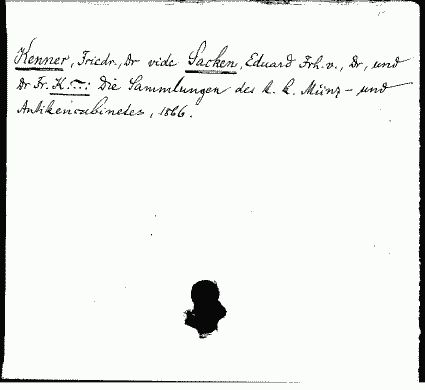 Kenner, Friedr., Dr vide Sacken, Eduard Frh. v., Dr, und
Dr Fr. K.—: Die Sammlungen des k. k. Münz- und
Antikencabinetes, 1866.